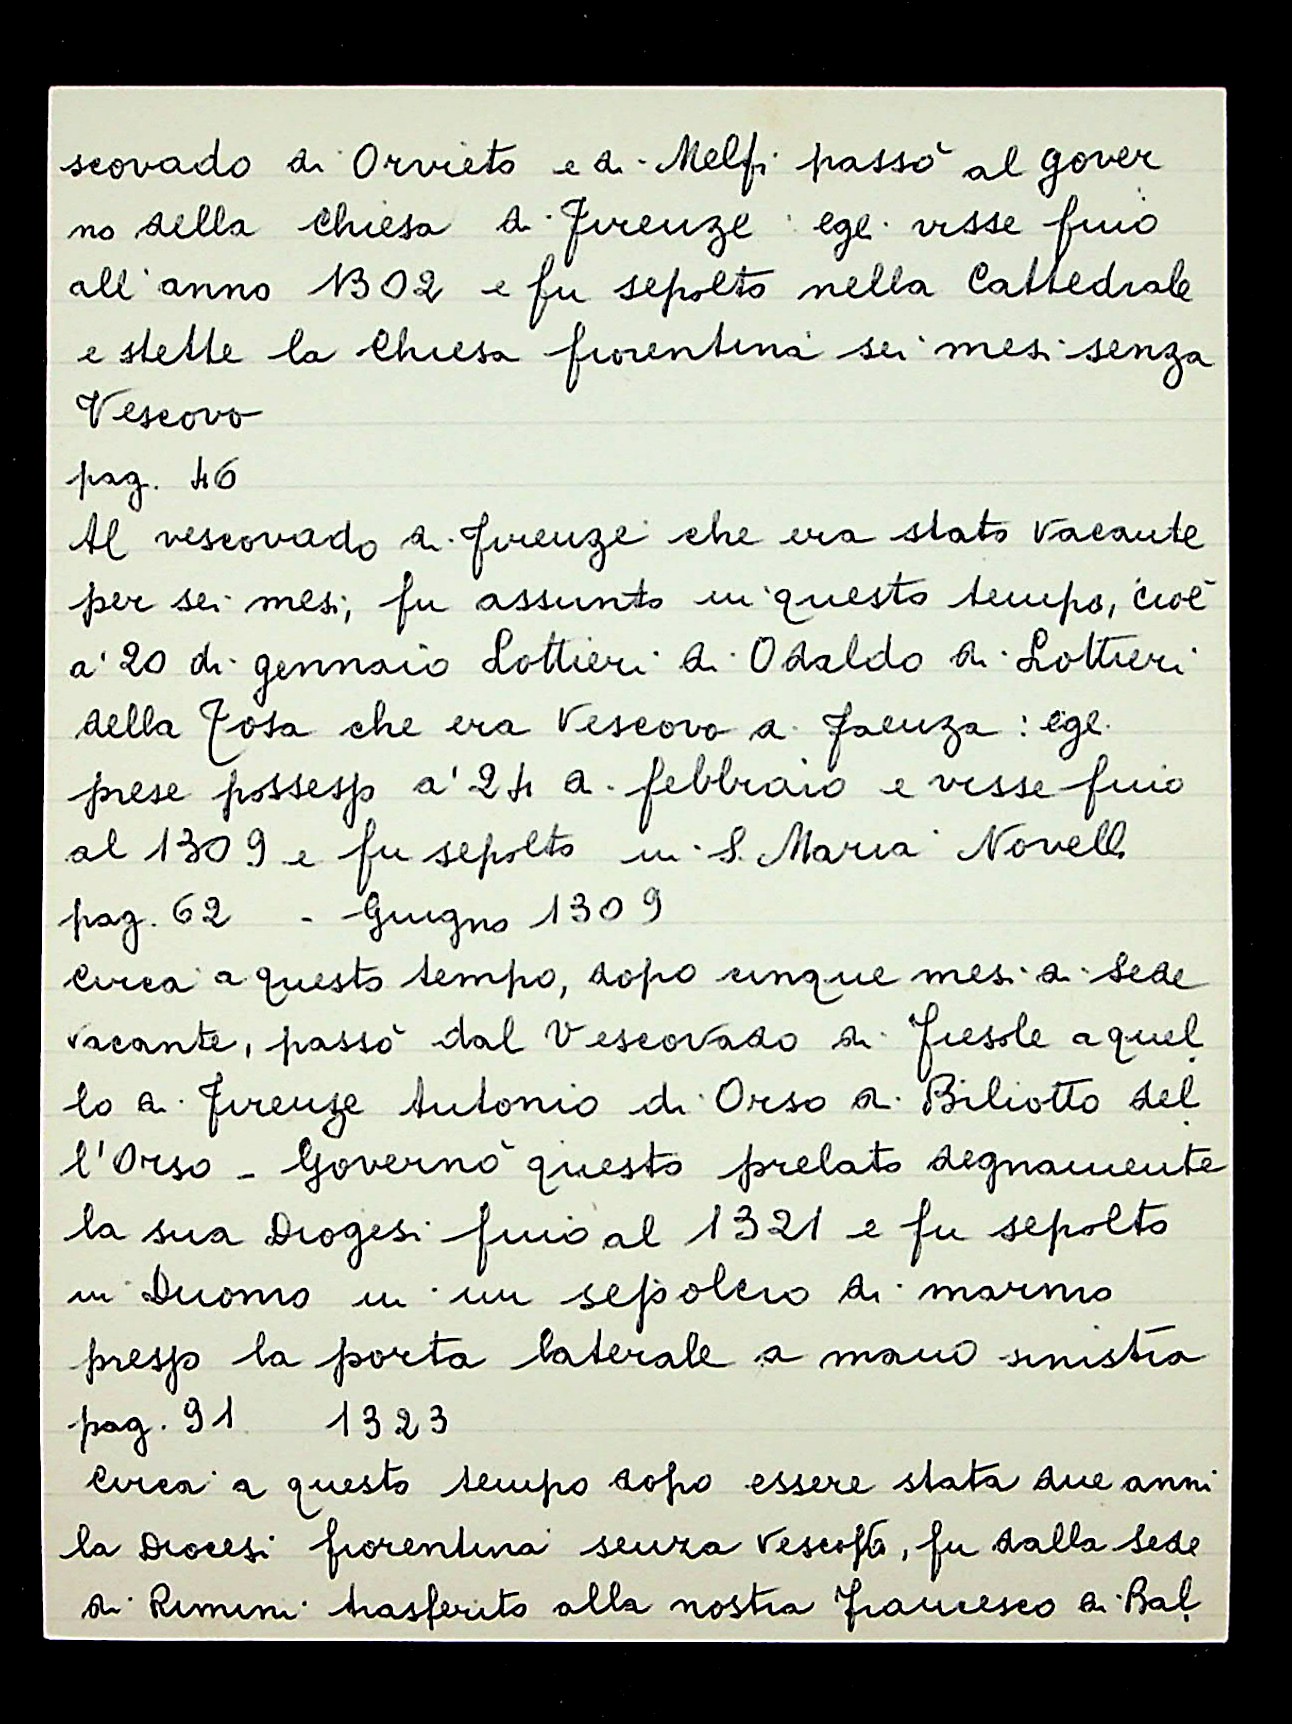 scovado di Orvieto e di Melfi passò al gover
no della Chiesa di Firenze : egli visse fino
all'anno 1302 e fu sepolto nella Cattedrale
e stette la Chiesa fiorentina sei mesi senza
Vescovo
pag. 46
Al vescovado di Firenze che era stato vacante
per sei mesi, fu assunto in questo tempo, cioè
a' 20 di gennaio Lottieri di Odaldo di Lottieri
della Tosa che era Vescovo di Faenza : egli
prese possesso a' 24 di febbraio e visse fino
al 1309 e fu sepolto in S. Maria Novella
pag. 62 - Giugno 1309
Circa a questo tempo, dopo cinque mesi di Sede
vacante, passò dal Vescovado di Fiesole a quel
lo di Firenze Antonio di Orso di Biliotto del
l'Orso - Governò questo prelato degnamente
la sua Diogesi fino al 1321 e fu sepolto
in Duomo in un sepolcro di marmo
presso la porta laterale a mano sinistra
pag. 91 1323
Circa a questo tempo dopo essere stata due anni
la Diocesi fiorentina senza Vescovo, fu dalla Sede
di Rimini trasferito alla nostra Francesco di Bal